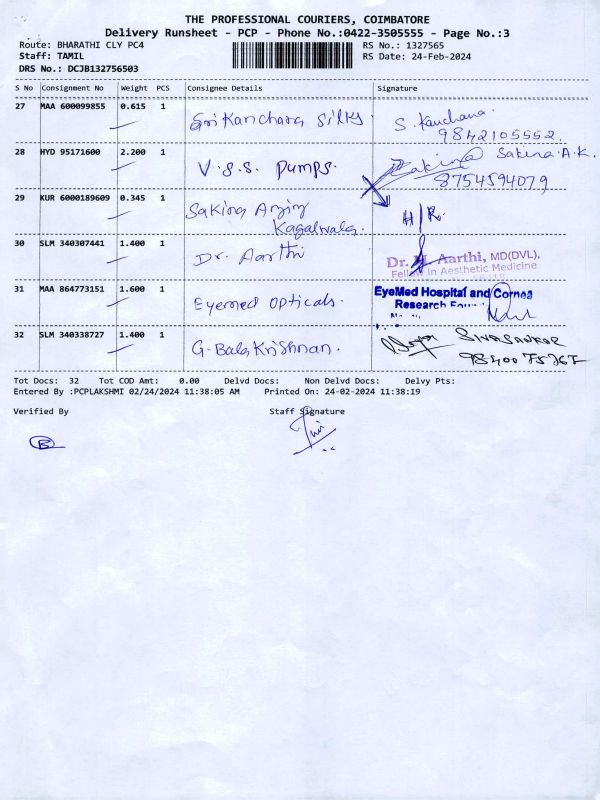 THE PROFESSIONAL COURIERS, COIMBATORE
Delivery Runsheet - PCP - Phone No.:0422-3505555 - Page No.:3
Route: BHARATHI CLY PC4 RS No.: 1327565
Staff: TAMIL RS Date: 24-Feb-2024
DRS No.: DCJB132756503
S No Consignment No Weight PCS Consignee Details Signature
27 MAA 600099855 0.615 1 Sri Kanchara Silks S. Kanchana
9842105552
28 HYD 95171600 2.200 1 V.S.S. Pumps. Sakina Sakina A.K.
8754594079
29 KUR 6000189609 0.345 1 Sakina H/R.
Kagalwala.
30 SLM 340307441 1.400 1 Dr. Aarthi Dr. Aarthi, MD(DVL),
Fellow in Aesthetic Medicine
31 MAA 864773151 1.600 1 Eyemed Opticals. EyeMed Hospital and Cornea
Research
32 SLM 340338727 1.400 1 G. Bala Krishnan. SIVASANKAR
Tot Docs: 32 Tot COD Amt: 0.00 Delvd Docs: Non Delvd Docs: Delvy Pts:
Entered By :PCPLAKSHMI 02/24/2024 11:38:05 AM Printed On: 24-02-2024 11:38:19
Verified By Staff Signature